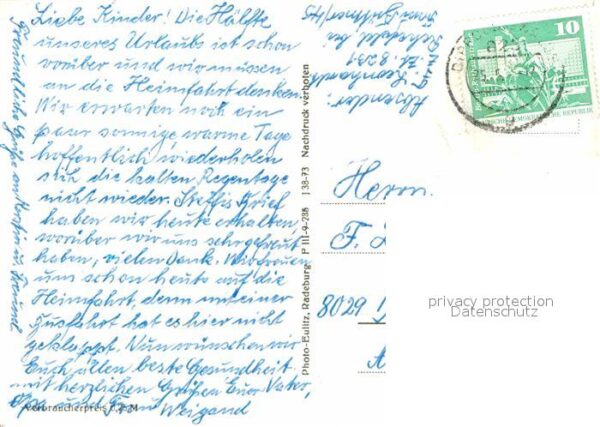 Liebe Kinder! Die Hälfte
unseres Urlaubs ist schon
vorüber und wir müssen
an die Heimfahrt denken.
Wir erwarten noch ein
paar sonnige warme Tage
hoffentlich wiederholen
sich die kalten Regentage
nicht wieder. Steffis Brief
haben wir heute erhalten,
worüber wir uns sehr gefreut
haben, vielen Dank. Wir freuen
uns schon heute auf die
Heimfahrt, denn mit einer
Ausfahrt hat es hier nicht
geklappt. Nun wünschen wir
Euch allen beste Gesundheit
mit herzlichen Grüßen Euer Vater,
Opa und Frau Weigand
Freundliche Grüße an Kerstin u. Freund
Verbraucherpreis M
Photo-Eulitz, Radeburg P III-9-235 J 38-73 Nachdruck verboten
Absender:
Zt. 8231
bei
10
DEUTSCHE DEMOKRATISCHE REPUBLIK
Herrn
F.
8029
privacy protection
Datenschutz